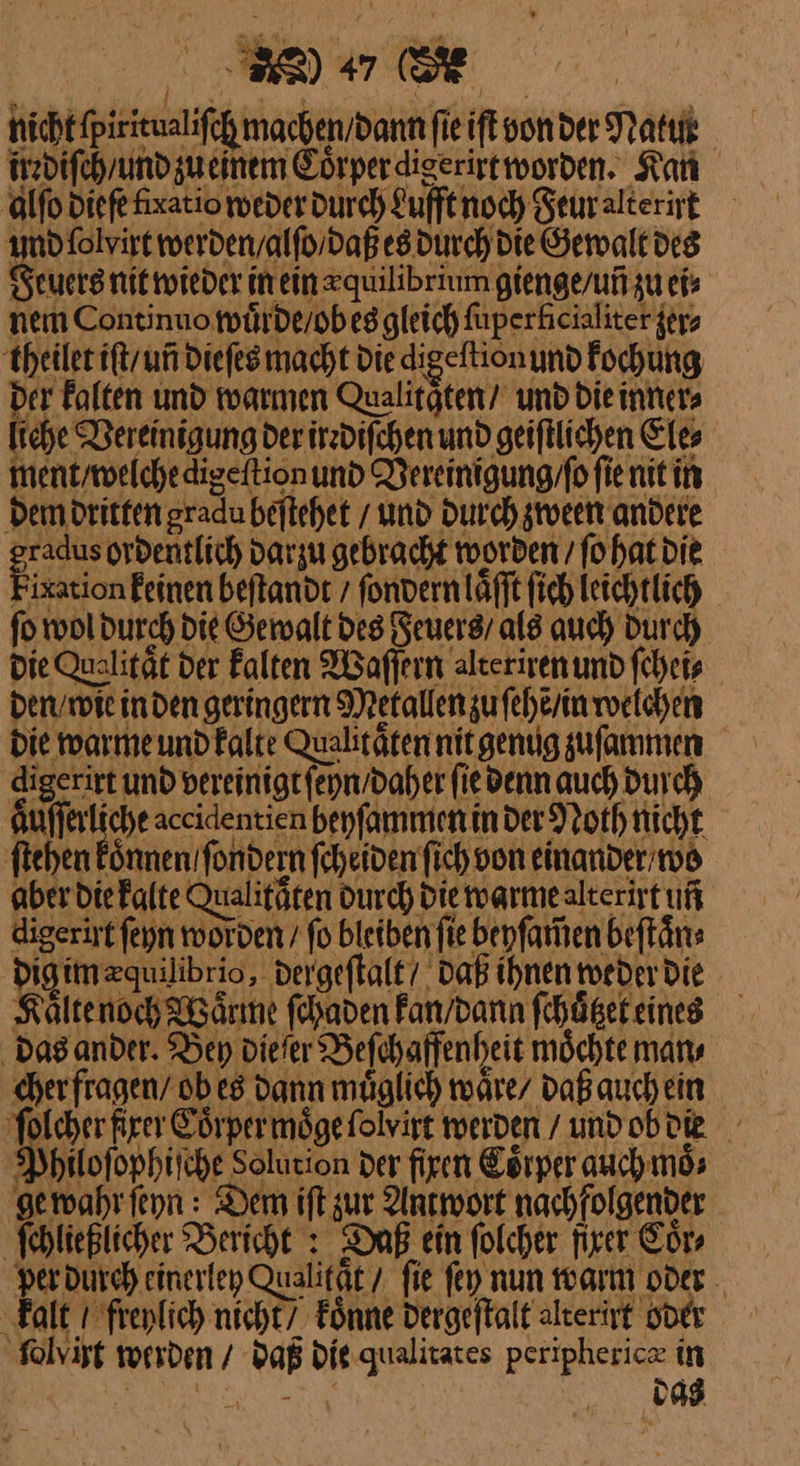 47
nicht ſpiritualiſch machen/dann ſie iſt von der Natur
irꝛdiſch/und zu einem Coͤrper digerirt worden. Kan
alſo dieſe fixatio weder durch Lufft noch Feur alterirt
und ſolvirt werden/alſo/daß es durch die Gewalt des
Feuers nit wieder in ein æquilibrium gienge/uñ zu ei⸗
nem Continuo wuͤrde/ob es gleich ſuperficialiter zer⸗
theilet iſt/uñ dieſes macht die digeſtion und kochung
der kalten und warmen Qualitaͤten/ und die inner⸗
liche Vereinigung der irꝛdiſchen und geiſtlichen Ele⸗
ment/welche digeſtion und Vereinigung/ſo ſie nit in
dem dritten gradu beſtehet / und durch zween andere
gradus ordentlich darzu gebracht worden / ſo hat die
Fixation keinen beſtandt / ſondern laͤſſt ſich leichtlich
ſo wol durch die Gewalt des Feuers/ als auch durch
die Qualitaͤt der kalten Waſſern alteriren und ſchei⸗
den/wie in den geringern Metallen zu ſehẽ/in welchen
die warme und kalte Qualitaͤten nit genug zuſammen
digerirt und vereinigt ſeyn/daher ſie denn auch durch
aͤuſſerliche accidentien beyſammen in der Noth nicht
ſtehen koͤnnen/ſondern ſcheiden ſich von einander/wo
aber die kalte Qualitaͤten durch die warme alterirt uñ
digerirt ſeyn worden / ſo bleiben ſie beyſam̃en beſtaͤn⸗
dig im æquilibrio, dergeſtalt/ daß ihnen weder die
Kaͤlte noch Waͤrme ſchaden kan/dann ſchuͤtzet eines
das ander. Bey dieſer Beſchaffenheit moͤchte man⸗
cher fragen/ ob es dann muͤglich waͤre/ daß auch ein
ſolcher fixer Coͤrper moͤge ſolvirt werden / und ob die
Philoſophiſche Solution der fixen Coͤrper auch moͤ⸗
ge wahr ſeyn : Dem iſt zur Antwort nachfolgender
ſchließlicher Bericht : Daß ein ſolcher fixer Coͤr⸗
per durch einerley Qualitaͤt / ſie ſey nun warm oder
kalt / freylich nicht/ koͤnne dergeſtalt alterirt oder
ſolvirt werden / daß die qualitates periphericæ in
das